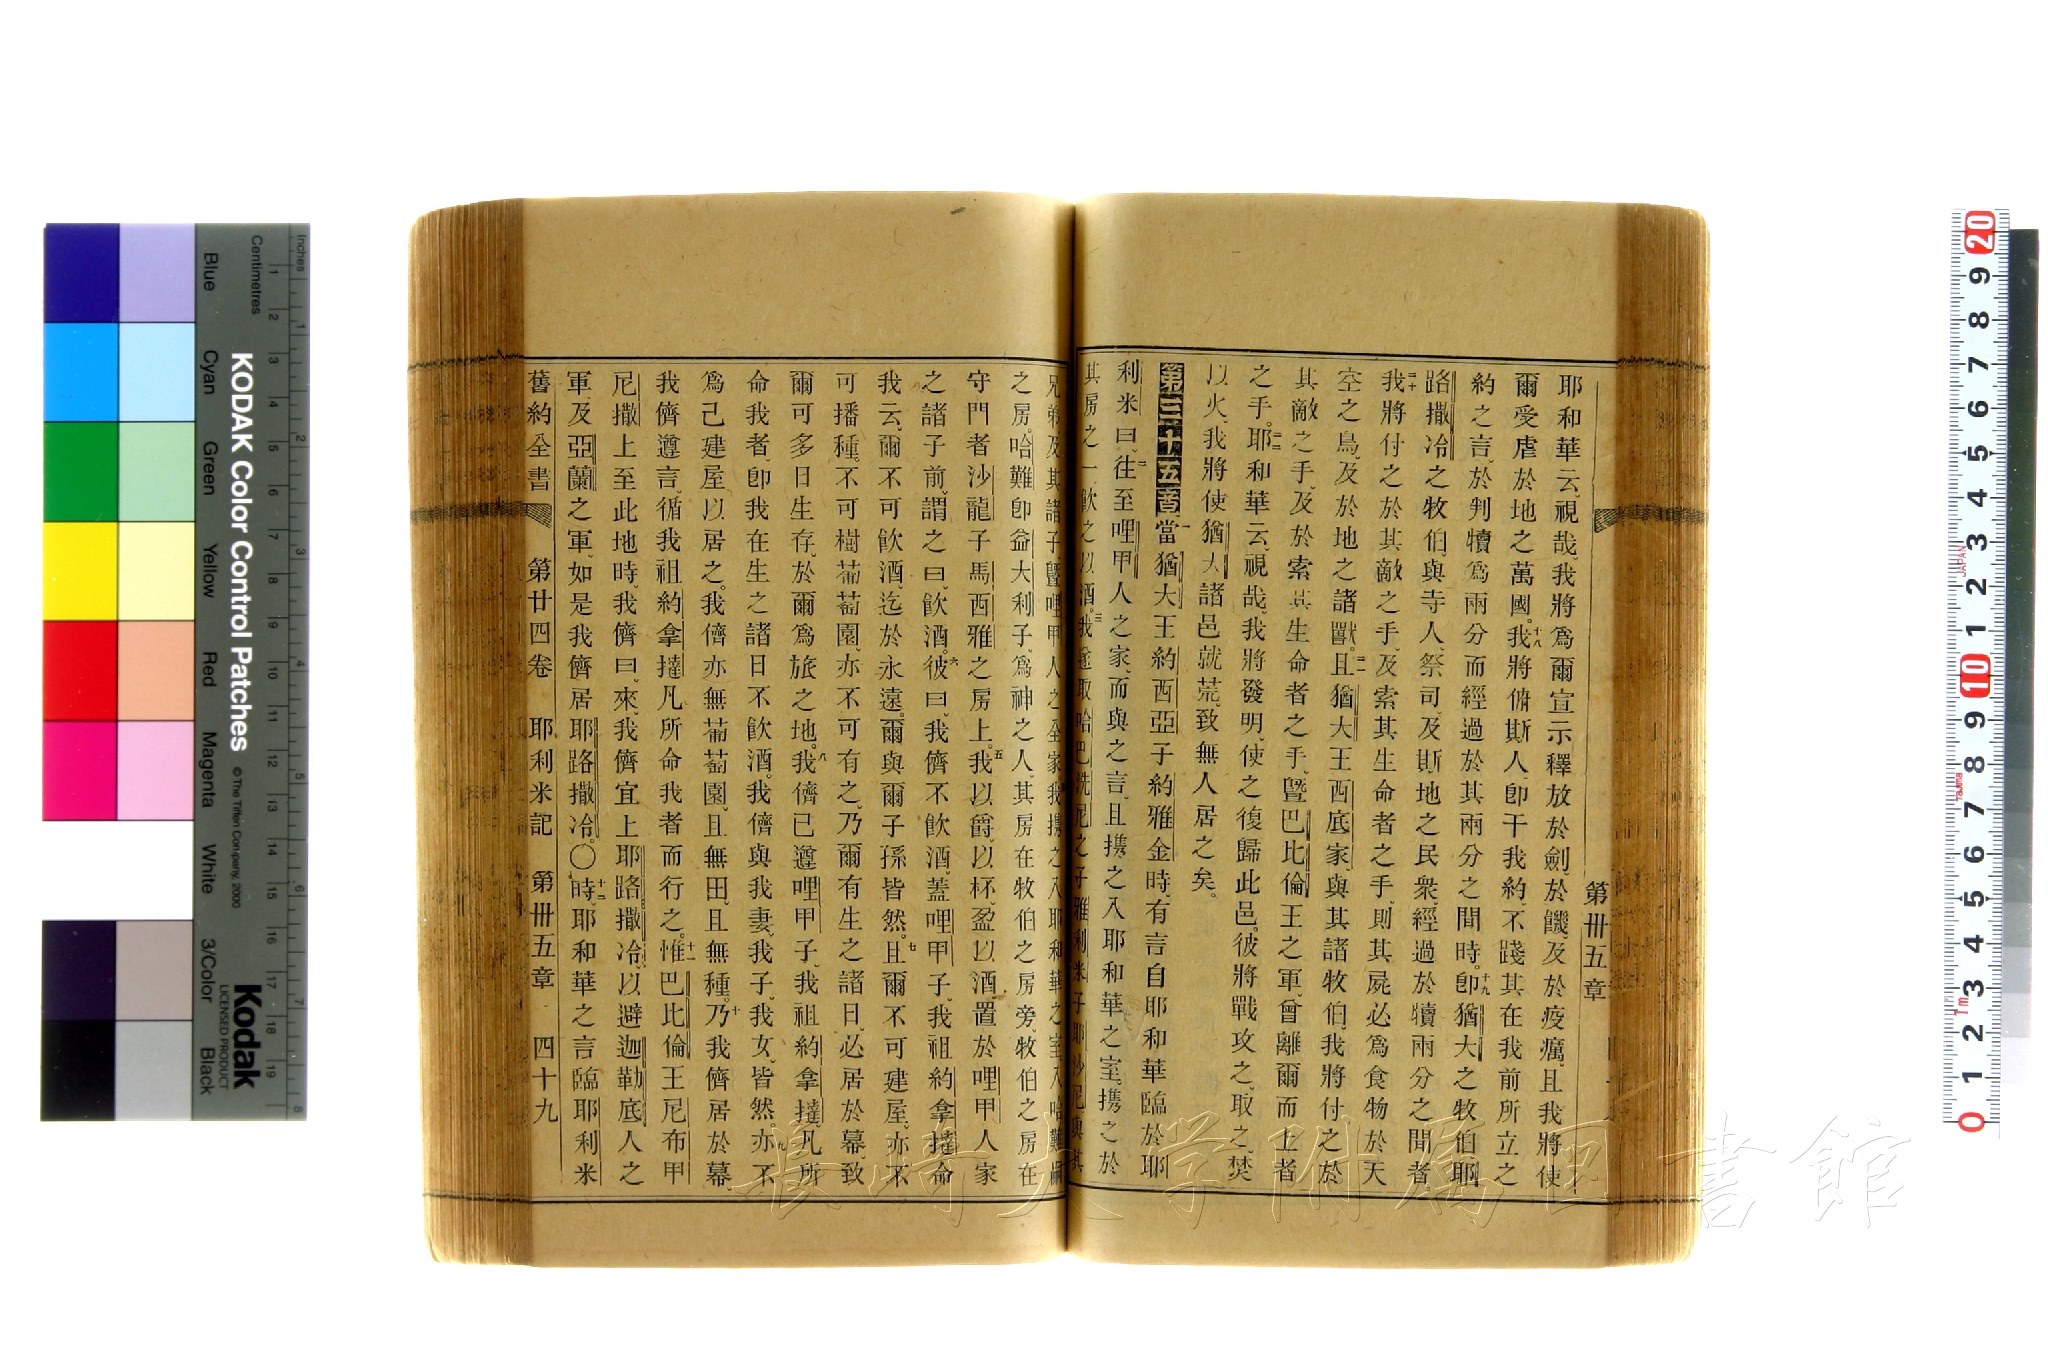 第卅五章
耶和華云、視哉、我將爲爾宣示釋放於劍、於饑、及於疫癘、且我將使
爾受虐於地之萬國。十八我將俯斯人、卽干我約、不踐其在我前所立之
約之言、於判犢爲兩分而經過於其兩分之間時。十九卽猶大之牧伯耶
路撒冷之牧伯、與寺人、祭司、及斯地之民衆經過於犢兩分之間者
二十我將付之於其敵之手、及索其生命者之手、則其屍必爲食物於天
空之鳥、及於地之諸獸。二一且猶大王西底家、與其諸牧伯、我將付之於
其敵之手、及於索其生命者之手、曁巴比倫王之軍、曾離爾而上者
之手。二二耶和華云、視哉、我將發明、使之復歸此邑、彼將戰攻之、取之、焚
以火、我將使猶大諸邑就荒、致無人居之矣。
第三十五章 一當猶大王約西亞子約雅金時、有言自耶和華臨於耶
利米曰、二往至哩甲人之家、而與之言、且攜之入耶和華之室、攜之於
其房之一、飲之以酒。三我遂取哈巴洗尼之子雅利米子耶沙尼與其
兄弟、及其諸子、曁哩甲人之全家、我攜之入耶和華之室、入哈難嗣
之房。哈難卽益大利子、爲神之人、其房在牧伯之房旁、牧伯之房在
守門者沙龍子馬西雅之房上。五我以爵、以杯、盈以酒、置於哩甲人家
之諸子前、謂之曰、飲酒。六彼曰、我儕不飲酒、蓋哩甲子、我祖約拿撻命
我云、爾不可飲酒、迄於永遠。爾與爾子孫皆然。七且爾不可建屋、亦不
可播種。不可樹葡萄園、亦不可有之、乃爾有生之諸日、必居於幕、致
爾可多日生存、於爾爲旅之地。八我儕已遵哩甲子、我祖約拿撻、凡所
命我者、卽我在生之諸日不飲酒。我儕與我妻、我子、我女、皆然。九亦不
爲己建屋以居之。我儕亦無葡萄園、且無田、且無種。十乃我儕居於幕、
我儕遵言、循我祖約拿撻凡所命我者而行之。十一惟巴比倫王尼布甲
尼撒上至此地時、我儕曰、來、我儕宜上耶路撒冷、以避迦勒底人之
軍、及亞蘭之軍、如是我儕居耶路撒冷。〇十二時、耶和華之言臨耶利米
舊約全書 第廿四卷 耶利米記 第卅五章 四十九
KODAK Color Control Patches
© The Tiffen Company, 2000
Kodak
LICENSED PRODUCT
Inches
Centimetres
Blue Cyan Green Yellow Red Magenta White 3/Color Black
1 2 3 4 5 6 7 8 9 10 11 12 13 14 15 16 17 18 19
20 9 8 7 6 5 4 3 2 1 10 9 8 7 6 5 4 3 2 1 0
JAPAN
Tajima
1m
長崎大学附属図書館